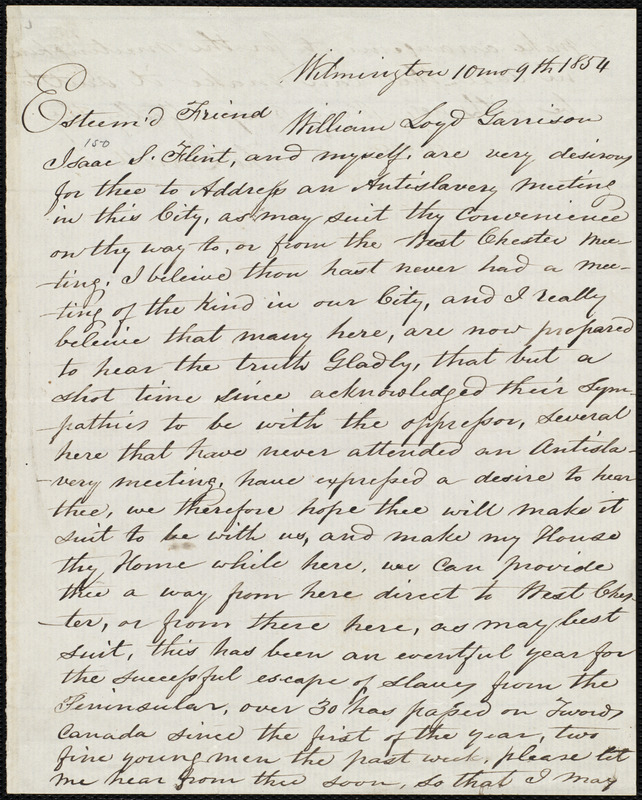 Wilmington 10mo 9th 1854
Esteem'd Friend William Loyd Garrison
150
Isaac S. Flint, and myself, are very desirous
for thee to Address an Antislavery meeting
in this City, as may suit thy Convenience
on thy way to, or from the West Chester Mee-
ting. I beleive thou hast never had a mee-
ting of the Kind in our City, and I really
beleive that many here, are now prepared
to hear the truth Gladly, that but a
shot time since acknowledged their Sym-
pathies to be with the oppressor, several
here that have never attended an Antisla-
very meeting, have expressed a desire to hear
thee, we therefore hope thee will make it
suit to be with us, and make my House
thy Home while here. we can provide
thee a way from here direct to West Ches-
ter, or from there here, as may best
suit, this has been an eventful year for
the successful escape of slaves from the
Peninsular, over 30 has passed on Twords
Canada since the first of the year, two
fine young men the past week. please let
me hear from thee soon, so that I may